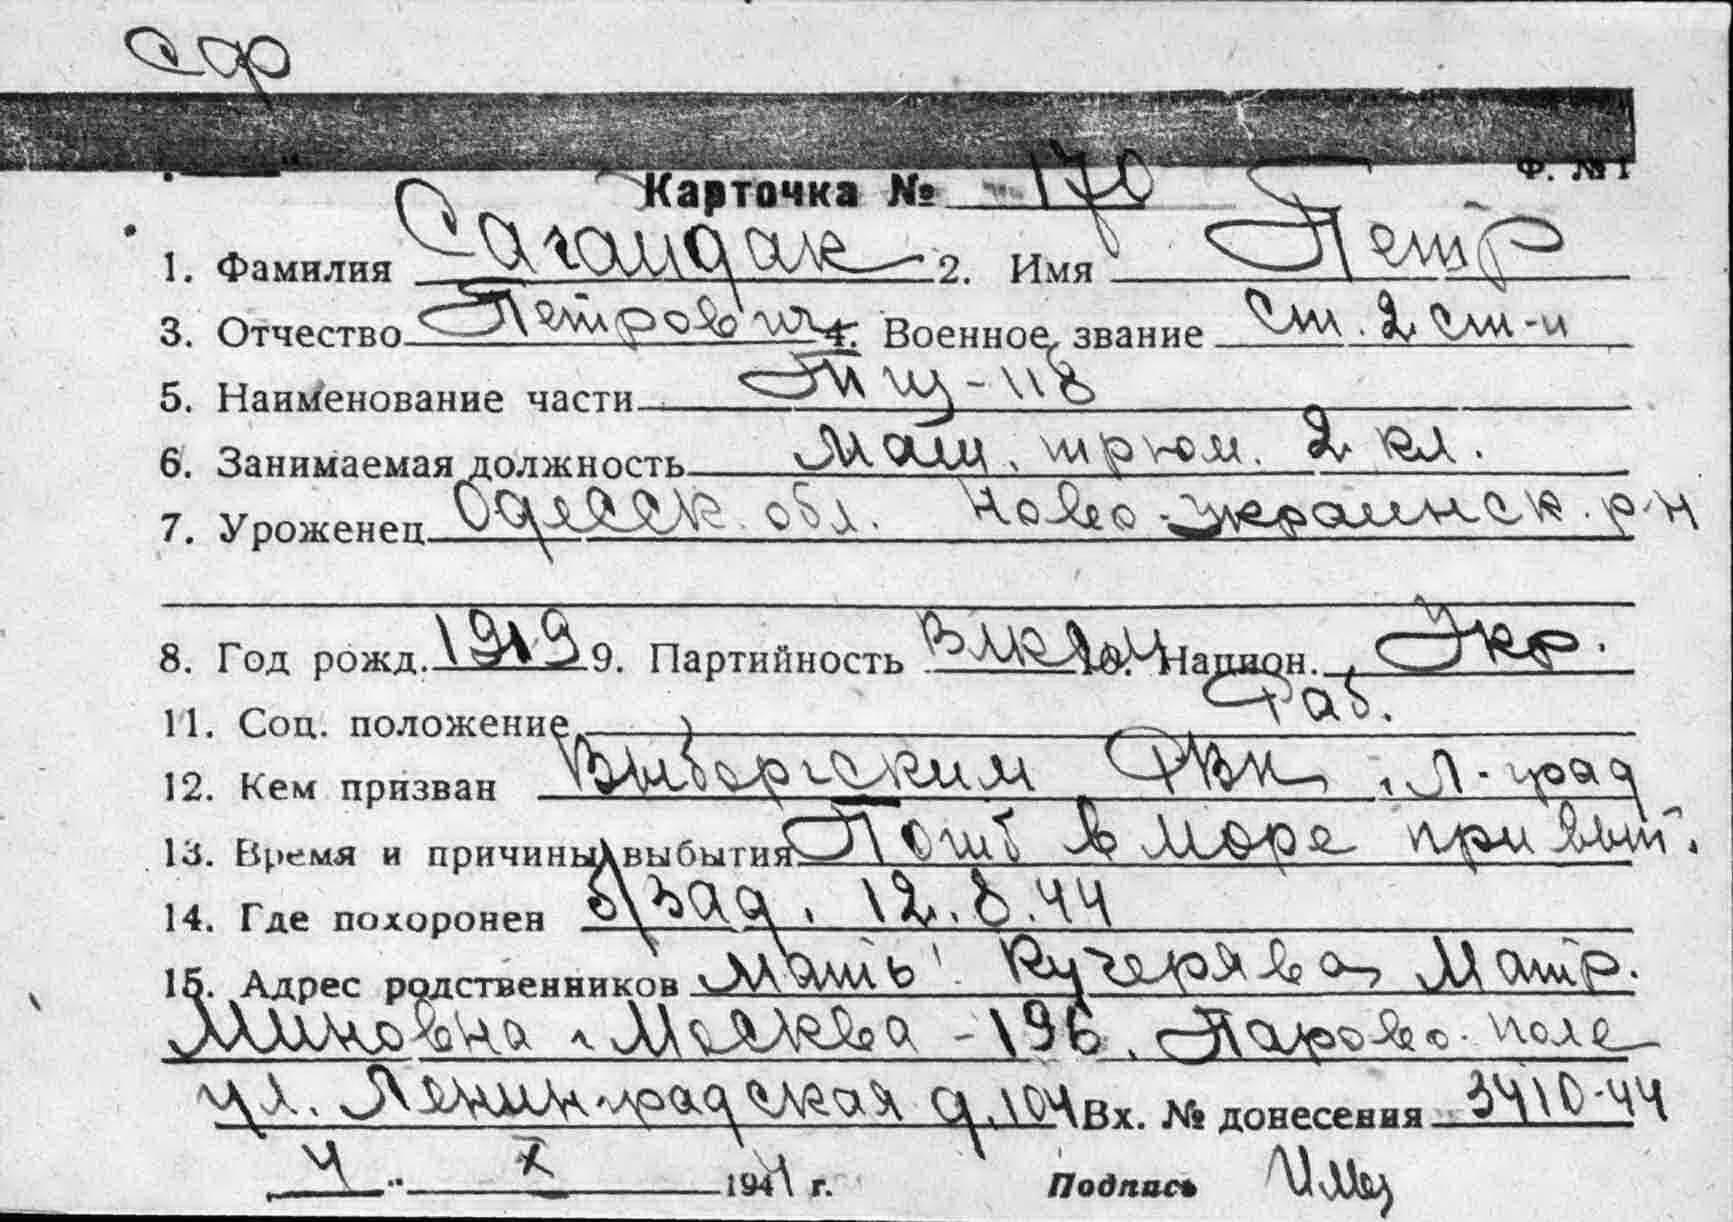 СФ
Ф. № 1
Карточка № 170
1. Фамилия Сагайдак 2. Имя Петр
3. Отчество Петрович 4. Военное звание Ст. 2 ст-и
5. Наименование части Тщ-118
6. Занимаемая должность Маш. трюм. 2 кл.
7. Уроженец Одесск. обл. Ново-Украинск. р-н
8. Год рожд. 1919 9. Партийность ВЛКСМ 10. Национ. Укр.
11. Соц. положение Раб.
12. Кем призван Выборгским РВК г. Л-град
13. Время и причины выбытия Погиб в море при вып.
14. Где похоронен б/зад. 12.8.44
15. Адрес родственников Мать: Кучерява Матр.
Миновна г. Москва - 196. Парово-поле
ул. Ленинградская д. 104 Вх. № донесения 3410-44
4 " X 1944 г. Подпись